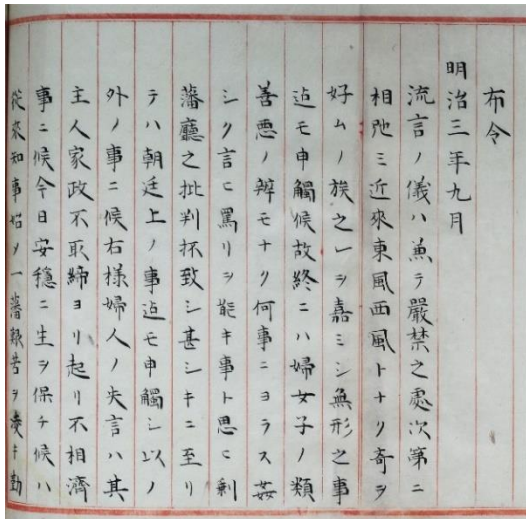 布令
明治三年九月
流言ノ儀ハ兼テ嚴禁之處次第ニ
相弛ミ近來東風西風トナリ奇ヲ
好ムノ族之ヲ嘉ミシ無形之事
迠モ申觸候故終ニハ婦女子ノ類
善悪ノ辨モナク何事ニヨラス姦
シク言ヒ罵リヲ能キ事ト思ヒ剰
藩廳之批判抔致シ甚シキニ至リ
テハ朝廷上ノ事迠モ申觸シ以ノ
外ノ事ニ候右様婦人ノ失言ハ其
主人家政不取締ヨリ起リ不相濟
事ニ候今日安穏ニ生ヲ保チ候ハ
従来知事始メ一藩艱苦ヲ凌キ勤